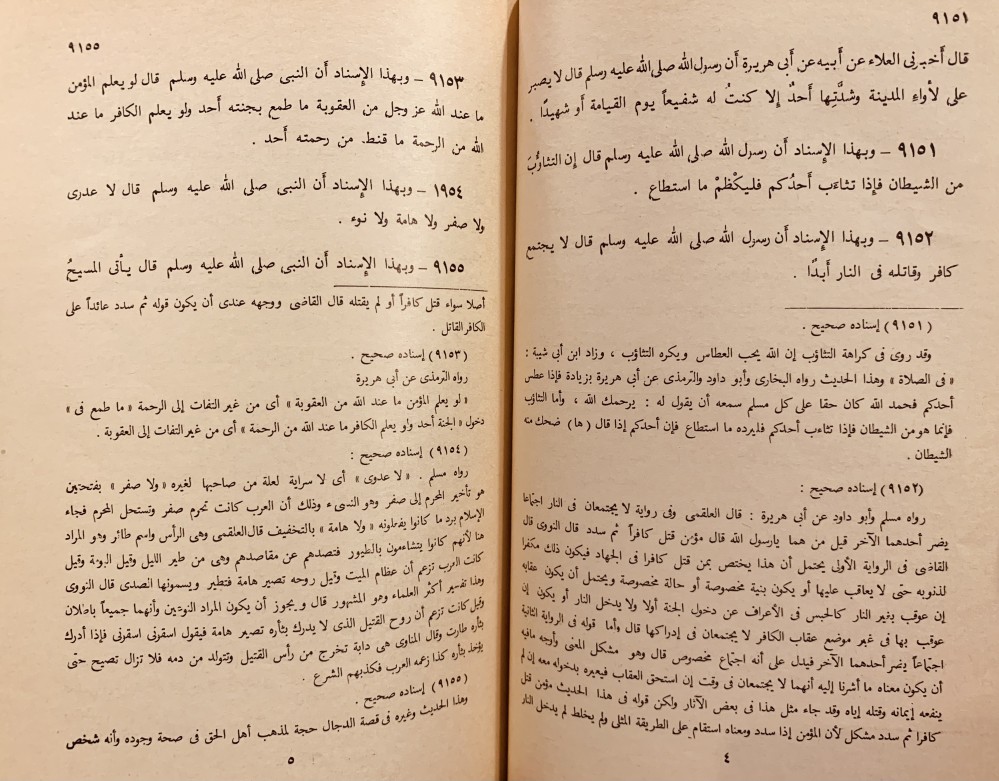 ٩١٥١
قال أخبرنى العلاء عن أبيه عن أبى هريرة أن رسول الله صلى الله عليه وسلم قال لا يصبر
على لأواءِ المدينة وشدَّتِها أحدٌ إلا كنتُ له شفيعاً يوم القيامة أو شهيدًا .
٩١٥١ – وبهذا الإِسناد أن رسول الله صلى الله عليه وسلم قال إن التثاؤُبَ
من الشيطان فإذا تثاءَب أحدُكم فليكْظمْ ما استطاع .
٩١٥٢ – وبهذا الإِسناد أن رسول الله صلى الله عليه وسلم قال لا يجتمع
كافر وقاتله فى النار أبدًا .
(٩١٥١) إسناده صحيح .
وقد روى فى كراهة التثاؤب إن الله يحب العطاس ويكره التثاؤب ، وزاد ابن أبى شيبة :
« فى الصلاة » وهذا الحديث رواه البخارى وأبو داود والترمذى عن أبى هريرة بزيادة فإذا عطس
أحدكم فحمد الله كان حقا على كل مسلم سمعه أن يقول له : يرحمك الله ، وأما التثاؤب
فإنما هو من الشيطان فإذا تثاءب أحدكم فليرده ما استطاع فإن أحدكم إذا قال (ها) ضحك منه
الشيطان .
(٩١٥٢) إسناده صحيح :
رواه مسلم وأبو داود عن أبى هريرة : قال العلقمى وفى رواية لا يجتمعان فى النار اجتماعا
يضر أحدهما الآخر قيل من هما يارسول الله قال مؤمن قتل كافراً ثم سدد قال النووى قال
القاضى فى الرواية الأولى يحتمل أن هذا يختص بمن قتل كافرا فى الجهاد فيكون ذلك مكفرا
لذنوبه حتى لا يعاقب عليها أو يكون بنية مخصوصة أو حالة مخصوصة ويحتمل أن يكون عقابه
إن عوقب بغير النار كالحبس فى الأعراف عن دخول الجنة أولا ولا يدخل النار أو يكون إن
عوقب بها فى غير موضع عقاب الكافر لا يجتمعان فى إدراكها قال وأما قوله فى الرواية الثانية
اجتماعاً يضر أحدهما الآخر فيدل على أنه اجتماع مخصوص قال وهو مشكل المعنى وأوجه مافيه
أن يكون معناه ما أشرنا إليه أنهما لا يجتمعان فى وقت إن استحق العقاب فيعيره بدخوله معه إن لم
ينفعه إيمانه وقتله إياه وقد جاء مثل هذا فى بعض الآثار ولكن قوله فى هذا الحديث مؤمن قتل
كافرا ثم سدد مشكل لأن المؤمن إذا سدد ومعناه استقام على الطريقة المثلى ولم يخلط لم يدخل النار
٤
٩١٥٥
٩١٥٣ – وبهذا الإِسناد أن النبى صلى الله عليه وسلم قال لو يعلم المؤمن
ما عند الله عز وجل من العقوبة ما طمع بجنته أحد ولو يعلم الكافر ما عند
الله من الرحمة ما قنط من رحمته أحد .
١٩٥٤ – وبهذا الإِسناد أن النبى صلى الله عليه وسلم قال لا عدرى
ولا صفر ولا هامة ولا نوء .
٩١٥٥ – وبهذا الإِسناد أن النبى صلى الله عليه وسلم قال يأتى المسيحُ
أصلا سواء قتل كافراً أو لم يقتله قال القاضى ووجهه عندى أن يكون قوله ثم سدد عائداً على
الكافر القاتل .
(٩١٥٣) إسناده صحيح .
رواه الترمذى عن أبى هريرة
« لو يعلم المؤمن ما عند الله من العقوبة » أى من غير التفات إلى الرحمة « ما طمع فى »
دخول « الجنة أحد ولو يعلم الكافر ما عند الله من الرحمة » أى من غير التفات إلى العقوبة .
(٩١٥٤) إسناده صحيح :
رواه مسلم . « لا عدوى » أى لا سراية لعلة من صاحبها لغيره « ولا صفر » بفتحتين
هو تأخير المحرم إلى صفر وهو النسىء وذلك أن العرب كانت تحرم صفر وتستحل المحرم فجاء
الإسلام برد ما كانوا يفعلونه « ولا هامة » بالتخفيف قال العلقمى وهى الرأس واسم طائر وهو المراد
هنا لأنهم كانوا يتشاءمون بالطيور فتصدهم عن مقاصدهم وهى من طير الليل وقيل البومة وقيل
كانت العرب تزعم أن عظام الميت وقيل روحه تصير هامة فتطير ويسمونها الصدى قال النووى
وهذا تفسير أكثر العلماء وهو المشهور قال ويجوز أن يكون المراد النوعين وأنهما جميعاً باطلان
وقيل كانت تزعم أن روح القتيل الذى لا يدرك بثأره تصير هامة فيقول اسقونى اسقونى فإذا أدرك
بثأره طارت وقال المناوى هى دابة تخرج من رأس القتيل وتتولد من دمه فلا تزال تصيح حتى
يؤخذ بثأره كذا زعمه العرب فكذبهم الشرع .
(٩١٥٥) إسناده صحيح .
وهذا الحديث وغيره فى قصة الدجال حجة لمذهب أهل الحق فى صحة وجوده وأنه شخص
٥